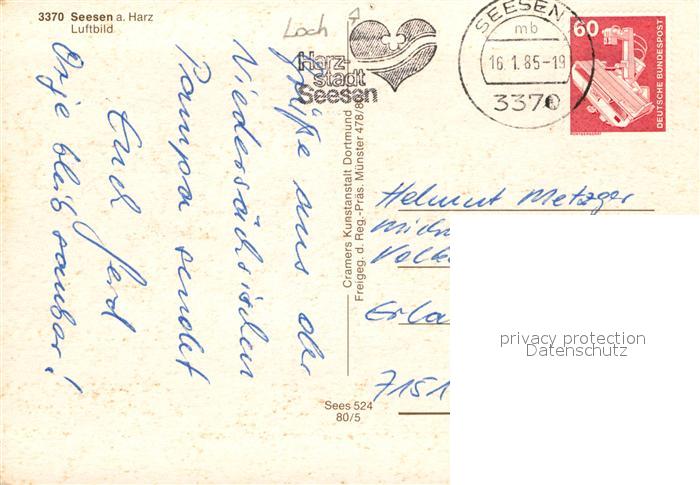 3370 Seesen a. Harz
Luftbild
Loch
Harz-
stadt
Seesen
SEESEN 1
mb
16.1.85-19
3370
60
DEUTSCHE BUNDESPOST
Grüße aus der
Niedersächsischen
Pampa sendet
Euch Gerd
Ortje bleib sauber!
Cramers Kunstanstalt Dortmund
Freigeg. d. Reg.-Präs. Münster 478/80
Helmut Metzger
Erla
7151
privacy protection
Datenschutz
Sees 524
80/5